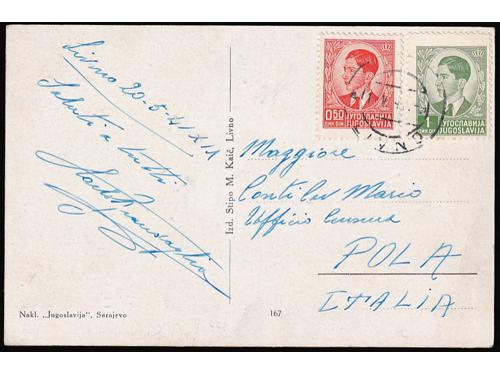 Livno 20-5-41 XIX
Saluti a
tutti
Izd. Stipo M. Kaić, Livno
Nakl. „Jugoslavija", Sarajevo
167
0·50
ЈУГОСЛАВИЈА
ДИН DIN JUGOSLAVIJA
1
ЈУГОСЛАВИЈА
ДИН DIN JUGOSLAVIJA
Maggiore
Conti Cav Mario
Ufficio Censura
POLA
ITALIA